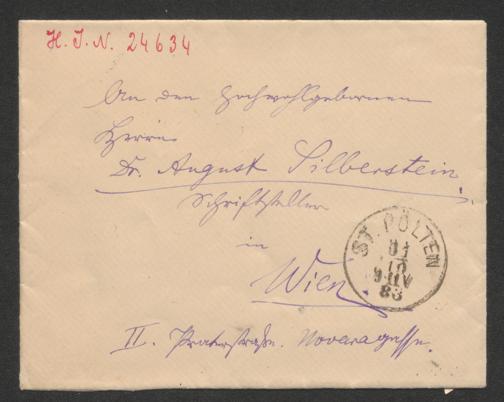 H. I. N. 24634
An den Hochwohlgebornen
Herrn
Dr. August Silberstein,
Schriftsteller
in
Wien
II. Praterstraße. Novaragasse.
ST. PÖLTEN
10
83